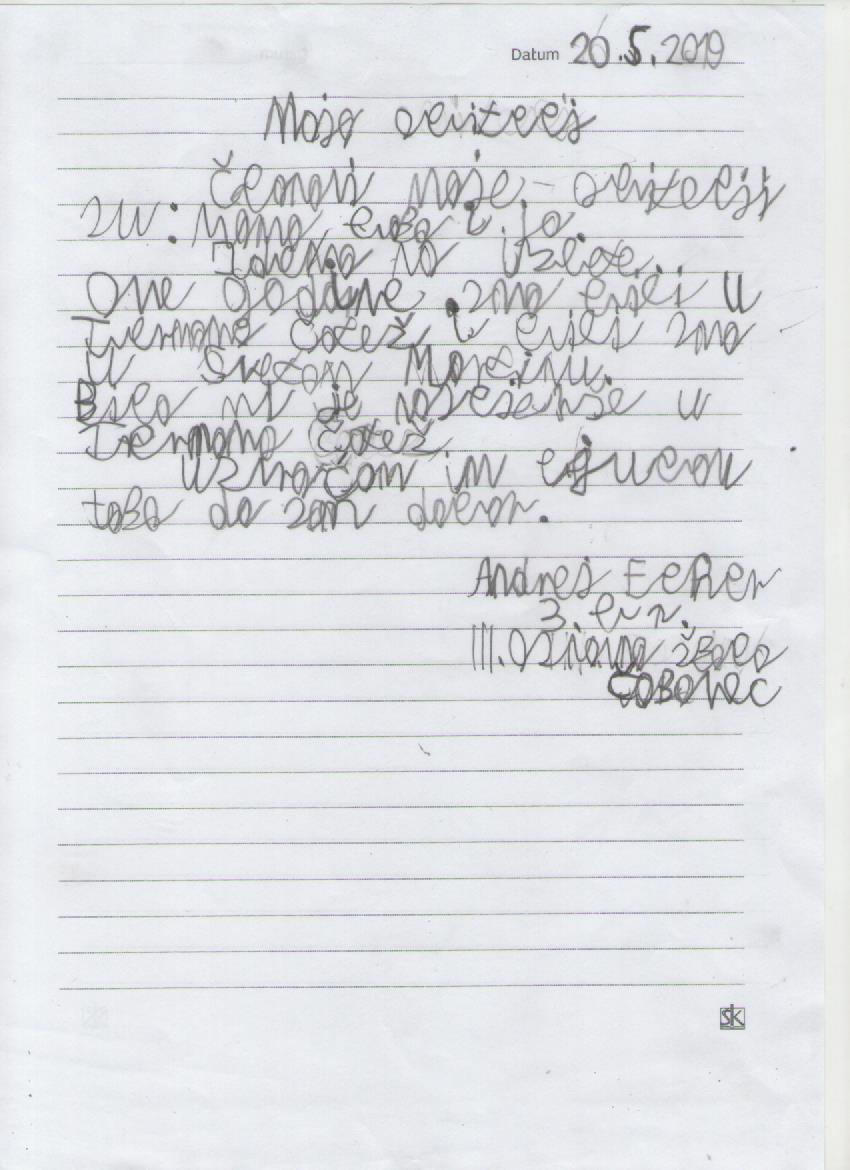 Datum 20.5.2019
Moja obitelj
Članovi moje obitelji
su: mama, luka i ja.
Idemo na izlete.
Ove godine smo bili u
Termama Čatež i bili smo
u Svetom Martinu.
Bilo mi je najljepše u
Termama Čatež.
Uzvraćam im ljubav
tako da sam dobar.
Andrej
3. r.
III. Osnovna škola
Čakovec
SK